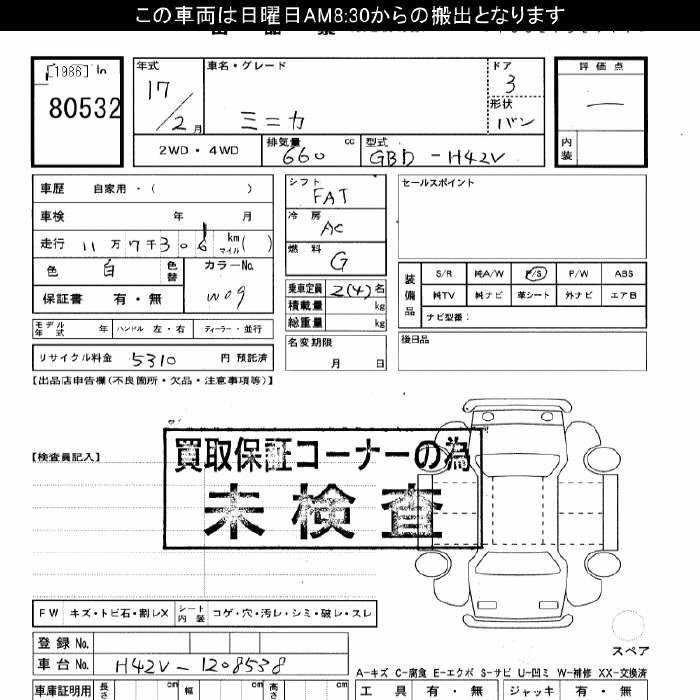 この車両は日曜日AM8:30からの搬出となります
[1986] In
80532
年式 17/2月
車名・グレード ミニカ
ドア 3
形状 バン
評価点 —
内装
2WD・4WD
排気量 660 cc
型式 GBD-H42V
車歴 自家用・( )
車検 年 月
走行 11万7千306 km マイル ( )
色 白 色替
カラーNo. W09
保証書 有・無
シフト FAT
冷房 AC
燃料 G
乗車定員 2(4)名
積載量 kg
総重量 kg
セールスポイント
装備品
S/R 純A/W P/S P/W ABS
純TV 純ナビ 革シート 外ナビ エアB
ナビ型番:
モデル年式 年 ハンドル 左・右 ディーラー・並行
名変期限 月 日
後日品
リサイクル料金 5310 円 預託済
【出品店申告欄(不良箇所・欠品・注意事項等)】
【検査員記入】
買取保証コーナーの為
未検査
FW キズ・トビ石・割レX シート内装 コゲ・穴・汚レ・シミ・破レ・スレ
スペア
登録No.
車台No. H42V-1208538
A-キズ C-腐食 E-エクボ S-サビ U-凹ミ W-補修 XX-交換済
車庫証明用 長さ cm 幅 cm 高さ cm
工具 有・無 ジャッキ 有・無